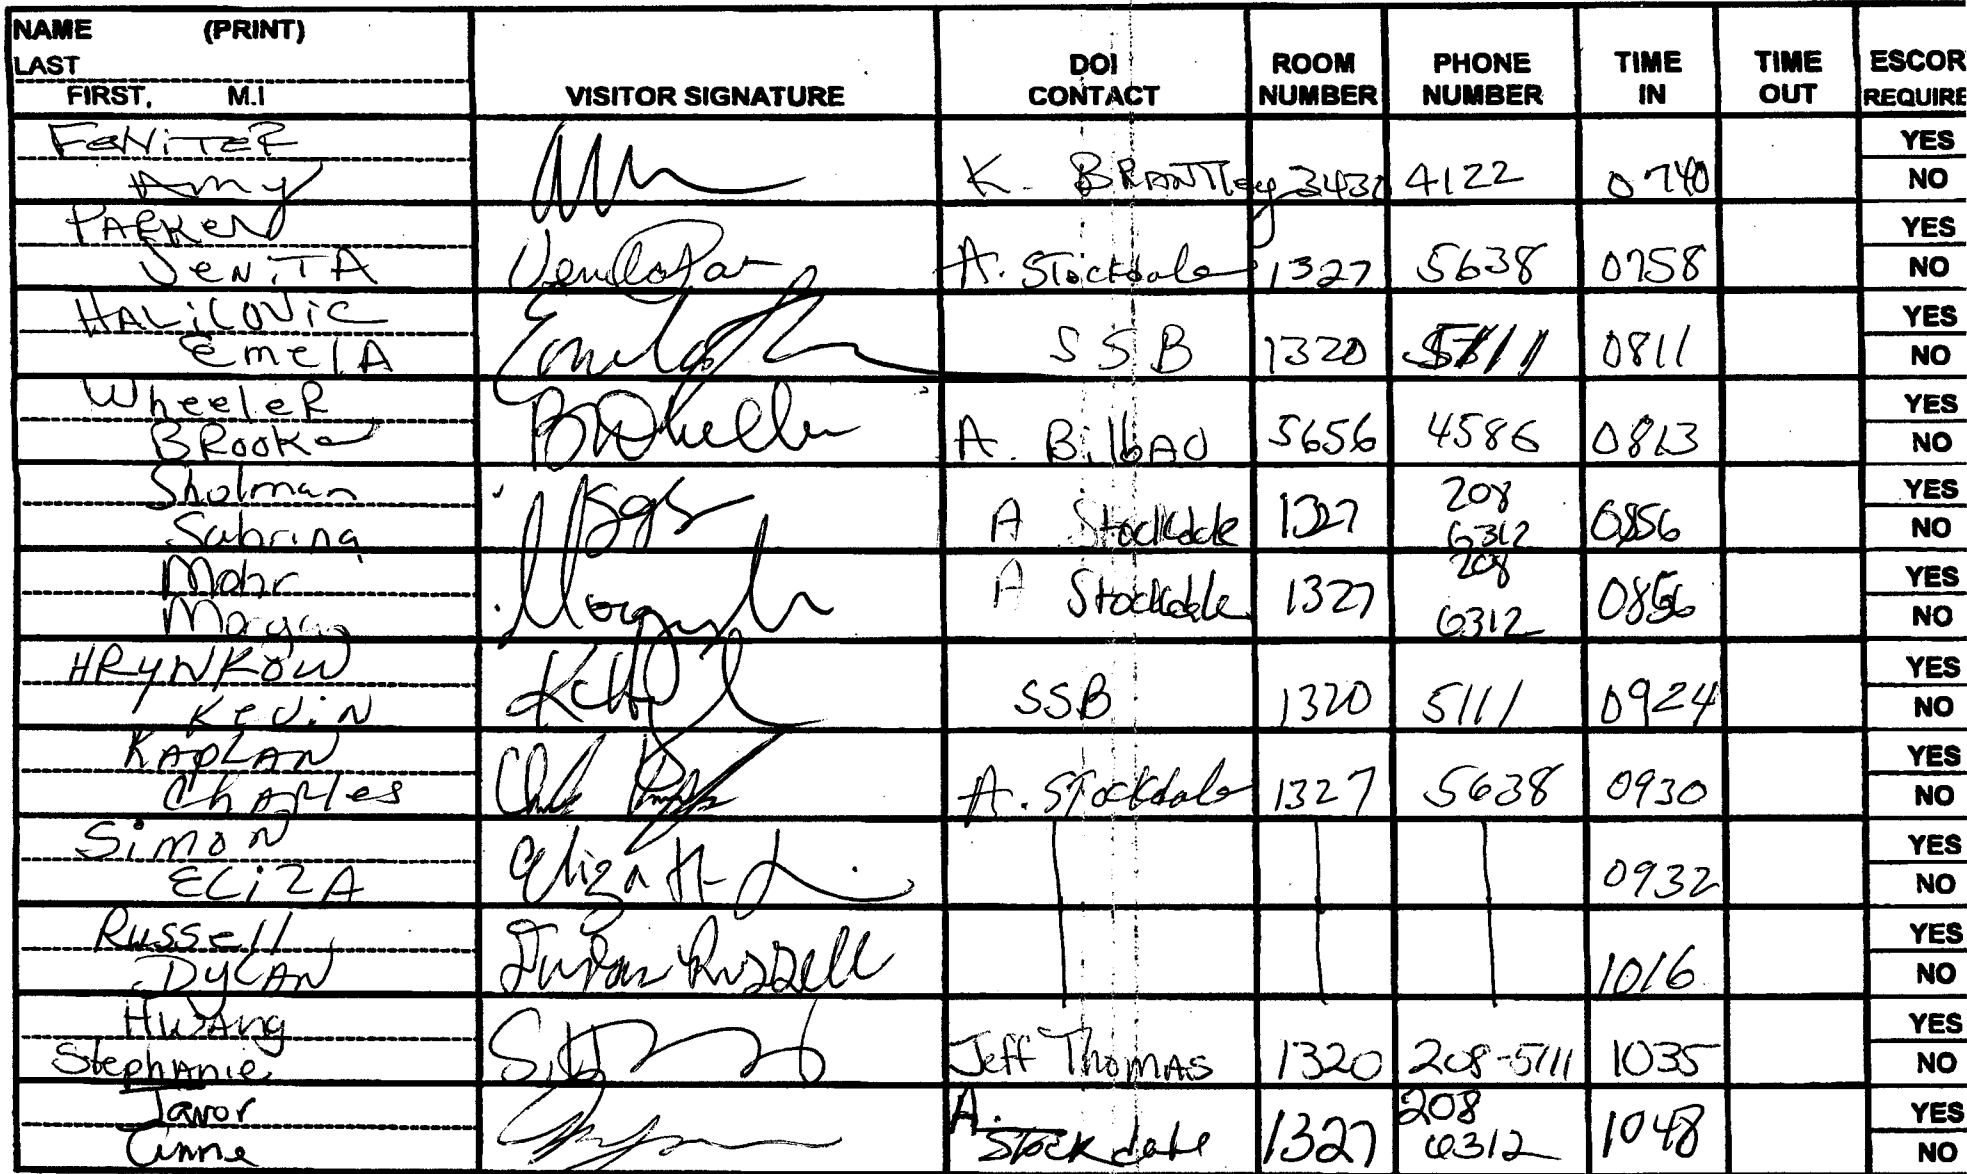 NAME (PRINT)
LAST
FIRST, M.I
VISITOR SIGNATURE
DOI CONTACT
ROOM NUMBER
PHONE NUMBER
TIME IN
TIME OUT
ESCOR
REQUIRE
FENiTER
Amy
K. BRANTley 3431 4122 0740
YES
NO
PARKER
JENiTA
A. Stockdale 1327 5638 0758
YES
NO
HALiLOViC
EmelA
SSB 1320 5111 0811
YES
NO
WheeleR
BRooke
BWheeler
A. BilbAO 5656 4586 0813
YES
NO
Sholman
Sabrina
A Stockdale 1327 208 6312 0856
YES
NO
Mohr
Morgan
A Stockdale 1327 208 6312 0856
YES
NO
HRYNKOW
KEViN
SSB 1320 5111 0924
YES
NO
KAPLAN
ChARles
A. Stockdale 1327 5638 0930
YES
NO
SimoN
ELiZA
0932
YES
NO
Russell
DYLAN
Russell
1016
YES
NO
HwANg
StephANie
Jeff ThomAs 1320 208-5111 1035
YES
NO
Javor
Anne
A. Stockdale 1327 208 6312 1048
YES
NO